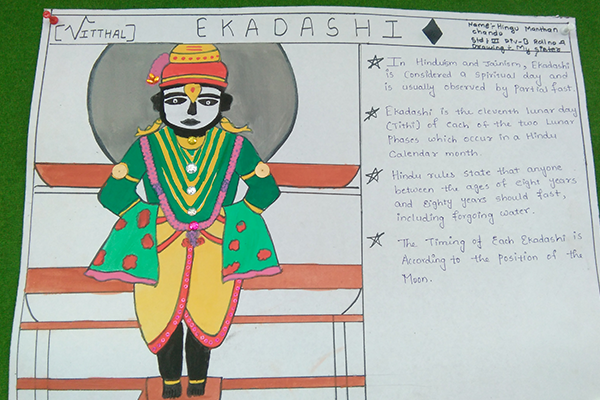 [VITTHAL]
EKADASHI
Name:- Hingu Manthan
chandu
Std: III Div-B Roll no 4
Drawing :- My state's
In Hinduism and Jainism, Ekadashi
is considered a Spiritual day and
is usually observed by Partial fast.
Ekadashi is the eleventh lunar day
(Tithi) of each of the two Lunar
Phases which occur in a Hindu
Calendar month.
Hindu rules state that anyone
between the ages of eight years
and Eighty years should fast,
including forgoing water.
The Timing of Each Ekadashi is
According to the position of the
Moon.